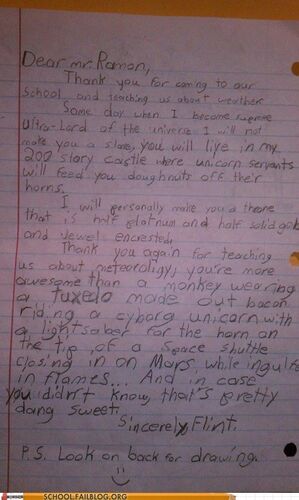 Dear mr. Ramon,
Thank you for coming to our
school and teaching us about weather
Some day when I become supreme
Ultra-Lord of the universe I will not
make you a slave, you will live in my
200 story castle where unicorn servants
will feed you doughnuts off their
horns.
I will personally make you a throne
that is half platnum and half solid gold
and jewel encrested.
Thank you again for teaching
us about meteoroligy, you're more
awesome than a monkey wearing
a tuxedo made out bacon
riding a cyborg unicorn with
a lightsaber for the horn on
the tip of a space shuttle
closing in on Mars while ingulfed
in flames... And in case
you didn't know, that's pretty
dang sweet.
Sincerely, Flint.
P.S. Look on back for drawing.
SCHOOL.FAILBLOG.ORG